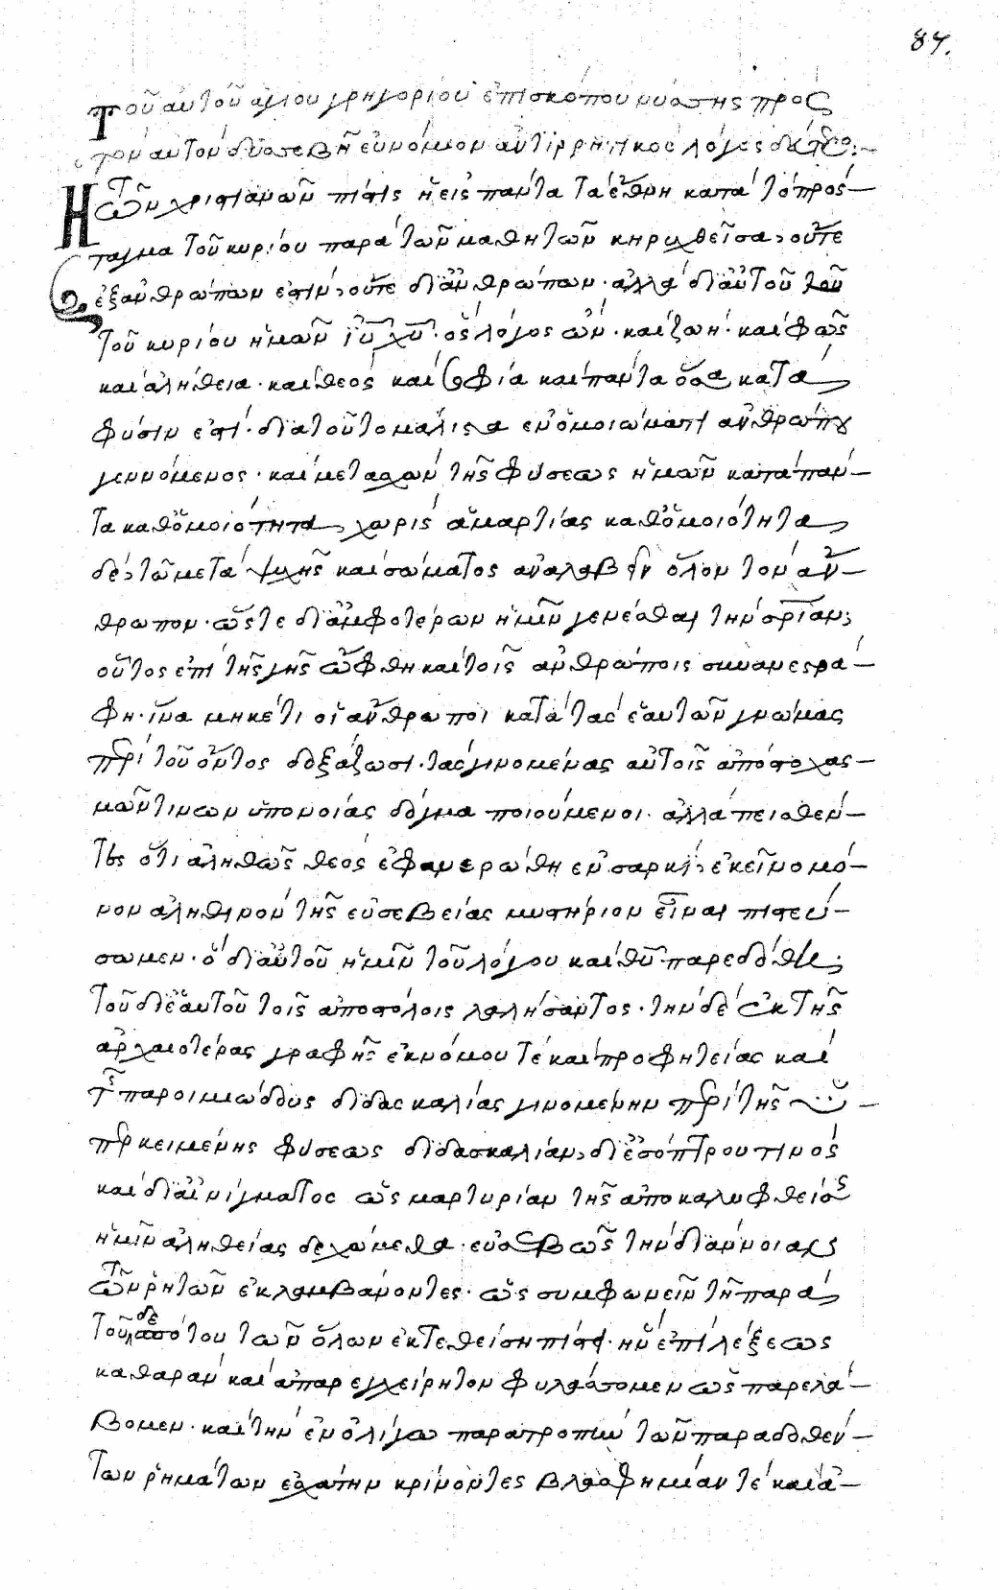 84.
Τοῦ αὐτοῦ ἁγίου γρηγορίου ἐπισκόπου νύσσης πρὸς
τὸν αὐτὸν δυσσεβῆ εὐνόμιον ἀντιρρητικὸς λόγος δεύτερος:
Ἡ τῶν χριστιανῶν πίστις ἡ εἰς πάντα τὰ ἔθνη κατὰ τὸ πρόσ-
ταγμα τοῦ κυρίου παρὰ τῶν μαθητῶν κηρυχθεῖσα, οὔτε
ἐξ ἀνθρώπων ἐστὶν, οὔτε δι' ἀνθρώπων· ἀλλὰ δι' αὐτοῦ τοῦ
τοῦ κυρίου ἡμῶν ἰυ χυ· ὃς λόγος ὢν· καὶ ζωὴ· καὶ φῶς
καὶ ἀλήθεια· καὶ θεὸς καὶ σοφία καὶ πάντα ὅσα κατὰ
φύσιν ἐστὶ· διὰ τοῦτο μάλιστα ἐν ὁμοιώματι ἀνθρώπου
γεννόμενος· καὶ μετασχὼν τῆς φύσεως ἡμῶν κατὰ πάν-
τα καθ' ὁμοιότητα, χωρὶς ἁμαρτίας καθ' ὁμοιότητα,
δὲ, τῶ μετὰ ψυχῆς καὶ σώματος ἀναλαβεῖν ὅλον τὸν ἄν-
θρωπον· ὥστε δι' ἀμφοτέρων ἡμῖν γενέσθαι τὴν σρίαν;
οὗτος ἐπὶ τῆς γῆς ὤφθη καὶ τοῖς ἀνθρώποις συνανεστρά-
φη· ἵνα μηκέτι οἱ ἄνθρωποι κατὰ τὰς ἑαυτῶν γνώμας
περὶ τοῦ ὄντος δοξάζωσι· τὰς γινομένας αὐτοῖς ἀπὸ στοχασ-
μῶν τινων ὑπονοίας δόγμα ποιούμενοι· ἀλλὰ πεισθέν-
τες ὅτι ἀληθῶς θεὸς ἐφανερώθη ἐν σαρκὶ, ἐκεῖνο μό-
νον ἀληθινὸν τῆς εὐσεβείας μυστήριον εἶναι πιστεύ-
σωμεν· ὃ δι' αὐτοῦ ἡμῖν τοῦ λόγου καὶ θυ παρεδόθη;
τοῦ δι' ἑαυτοῦ τοῖς ἀποστόλοις λαλήσαντος· τὴν δὲ ἐκ τῆς
ἀρχαιοτέρας γραφῆς ἐκ νόμου τὲ καὶ προφητείας καὶ
τῆς παροιμιώδους διδασκαλίας γινομένην περὶ τῆς ὑ-
περκειμένης φύσεως διδασκαλίαν, δι' ἐσόπτρου τινὸς
καὶ δι' αἰνίγματος ὡς μαρτυρίαν τῆς ἀποκαλυφθείσης
ἡμῖν ἀληθείας δεχώμεθα· εὐσεβῶς τὴν διάννοιαν
τῶν ῥητῶν ἐκλαμβάνοντες· ὡς συμφωνεῖν τῆ παρὰ
τοῦ δεσπότου τῶν ὅλων ἐκτεθείση πίστει· ἣν ἐπὶ λέξεως
καθαρὰν καὶ ἀπαρεγχείρητον φυλάσσομεν ὡς παρελά-
βομεν· καὶ τὴν ἐν ὀλίγω παρατροπὴν τῶν παραδοθέν-
των ῥημάτων ἐσχάτην κρίνοντες βλασφημίαν τὲ καὶ ἀ-